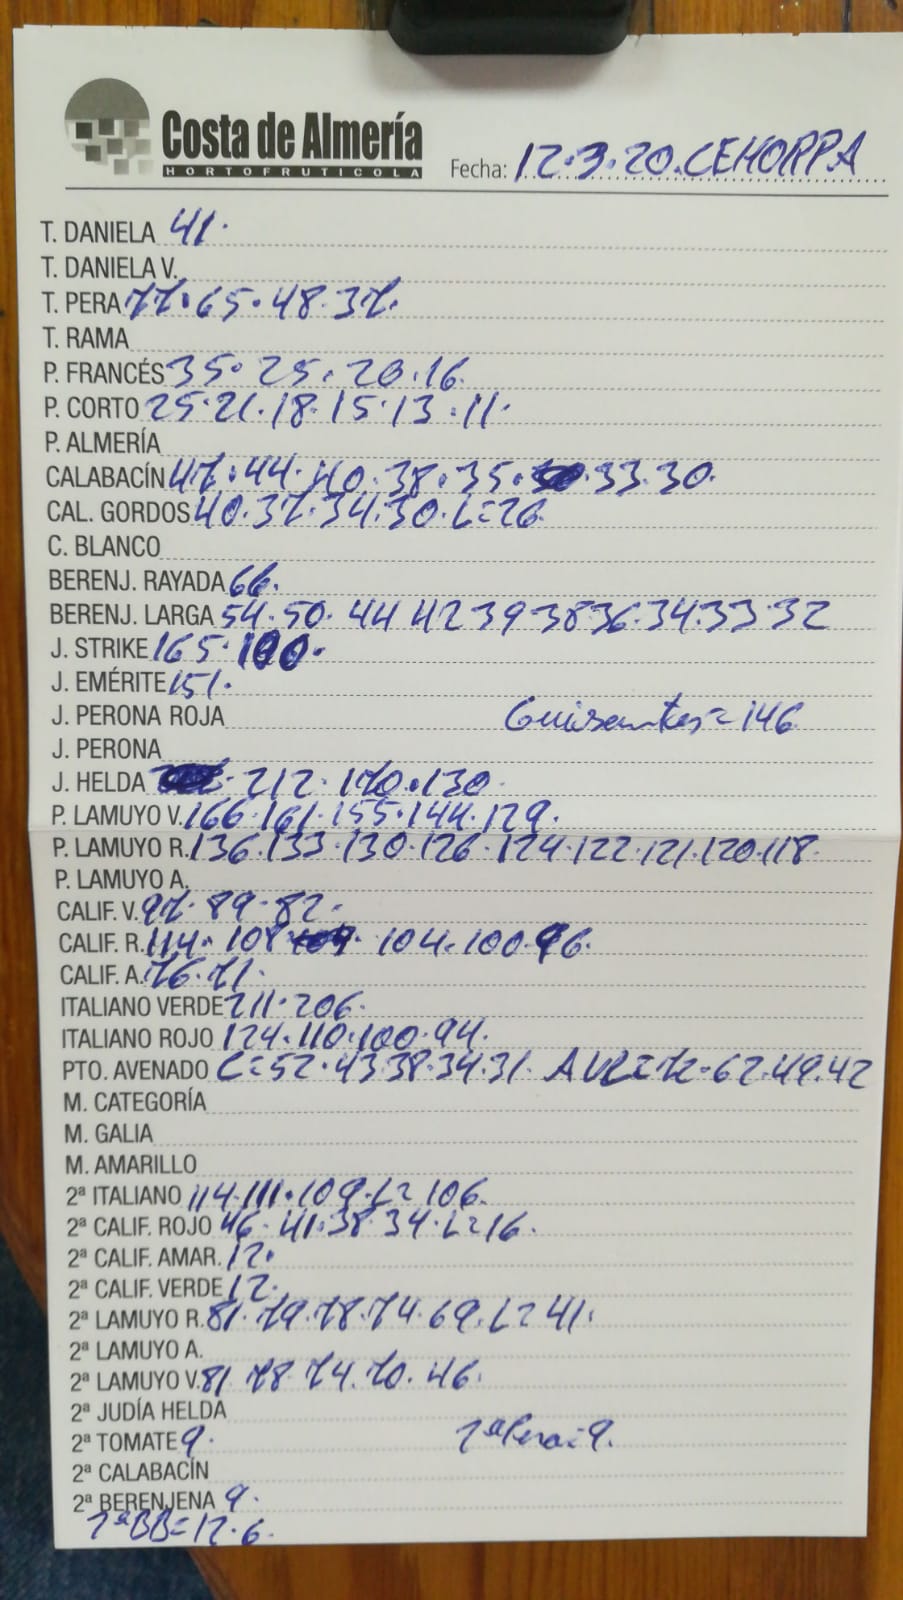 Costa de Almería
HORTOFRUTICOLA
Fecha: 12.3.20. CEHORPA
T. DANIELA 41.
T. DANIELA V.
T. PERA 77.65.48.37.
T. RAMA
P. FRANCÉS 35.25.20.16.
P. CORTO 25.21.18.15.13.11.
P. ALMERÍA
CALABACÍN 47.44.40.38.35.33.30.
CAL. GORDOS 40.37.34.30.L=26
C. BLANCO
BERENJ. RAYADA 66.
BERENJ. LARGA 54.50.44 42 39 38 36.34.33.32
J. STRIKE 165.100.
J. EMÉRITE 151.
J. PERONA ROJA Guisantes=146
J. PERONA
J. HELDA 212.170.130.
P. LAMUYO V. 166.161.155.144.129.
P. LAMUYO R. 136.133.130.126.124.122.121.120.118.
P. LAMUYO A.
CALIF. V. 97.89.82.
CALIF. R. 114.108 104.100.96.
CALIF. A. 76.71.
ITALIANO VERDE 211.206.
ITALIANO ROJO 124.110.100.94.
PTO. AVENADO C=52.43 38.34.31. 62.49.42
M. CATEGORÍA
M. GALIA
M. AMARILLO
2ª ITALIANO 114.111.109.L=106.
2ª CALIF. ROJO 46.41.38.34.L=16.
2ª CALIF. AMAR. 12.
2ª CALIF. VERDE 12.
2ª LAMUYO R. 81.79.78.74.69.L=41.
2ª LAMUYO A.
2ª LAMUYO V. 81.78.74.70.46.
2ª JUDÍA HELDA
2ª TOMATE 9. 2ª Pera=9.
2ª CALABACÍN
2ª BERENJENA 9.
2ªBB=12.6.